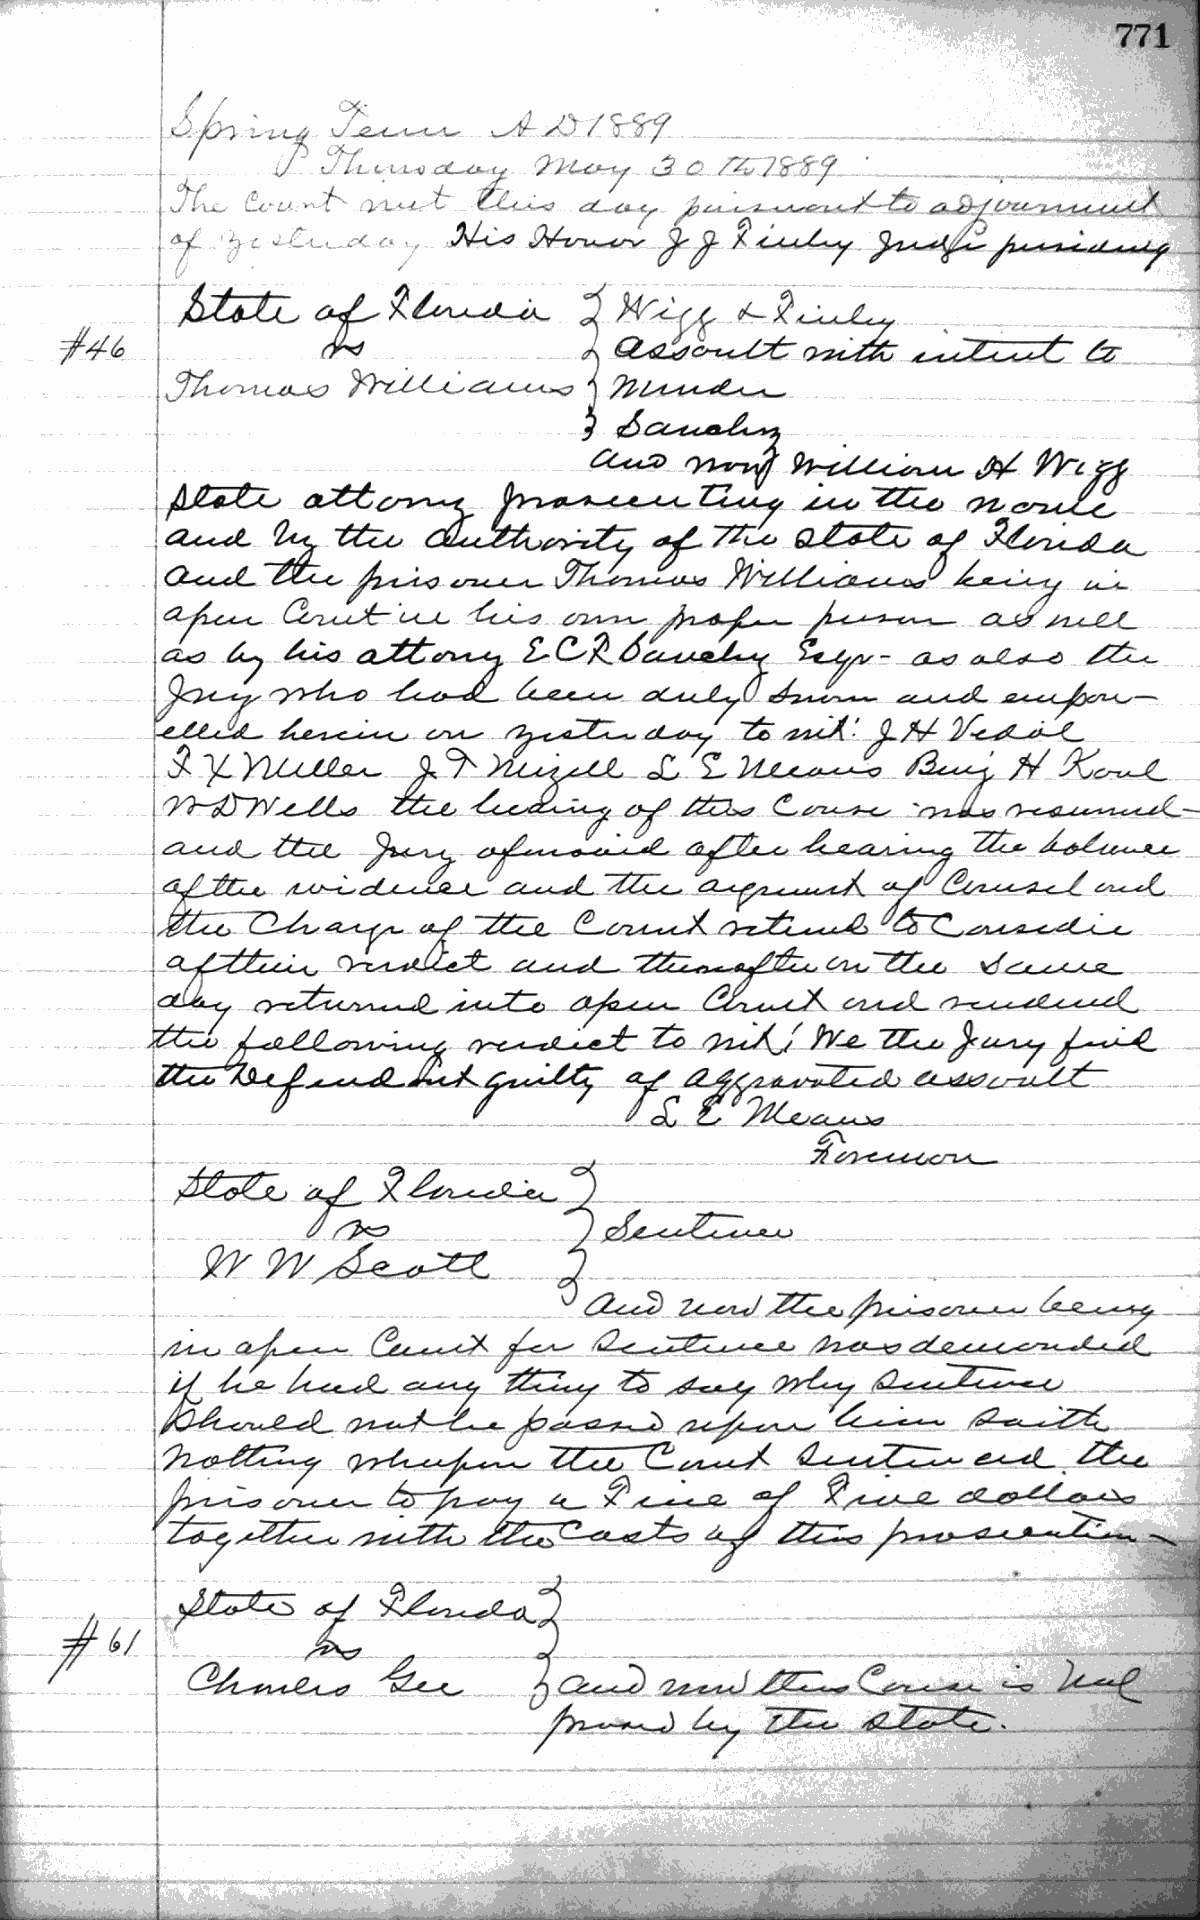 771
Spring Term A D 1889
Thursday May 30th 1889
The Court met this day pursuant to adjournment
of yesterday His Honor J J Finley Judge presiding
State of Florida } Wigg & Finley
#46 vs } Assault with intent to
Thomas Williams } Murder
} Sanchez
And now William H Wigg
State attorny prosecuting in the name
and by the authority of the State of Florida
and the prisoner Thomas Williams being in
open Court in his own proper person as well
as by his attorny E C F Sanchez Esqr - as also the
Jury who had been duly sworn and empan-
elled herein on yesterday to wit: J H Vidal
F X Miller J T Mizell L E Means Benj H Koul
W D Wells the hearing of this Cause was resumed -
and the Jury aforesaid after hearing the balance
of the evidence and the argument of Counsel and
the Charge of the Court retired to Consider
of their verdict and thereafter on the same
day returned into open Court and rendered
the following verdict to wit: We the Jury find
the Defendant guilty of aggravated assault
L E Means
Foreman
State of Florida }
vs } Sentence
W W Scott }
And now the prisoner being
in open Court for Sentence was demanded
if he had any thing to say why Sentence
should not be passed upon him saith
Nothing whereupon the Court Sentenced the
prisoner to pay a Fine of Five dollars
together with the Costs of this prosecution -
State of Florida }
#61 vs
Charles Gee } And now this Cause is Nol
prossed by the State.